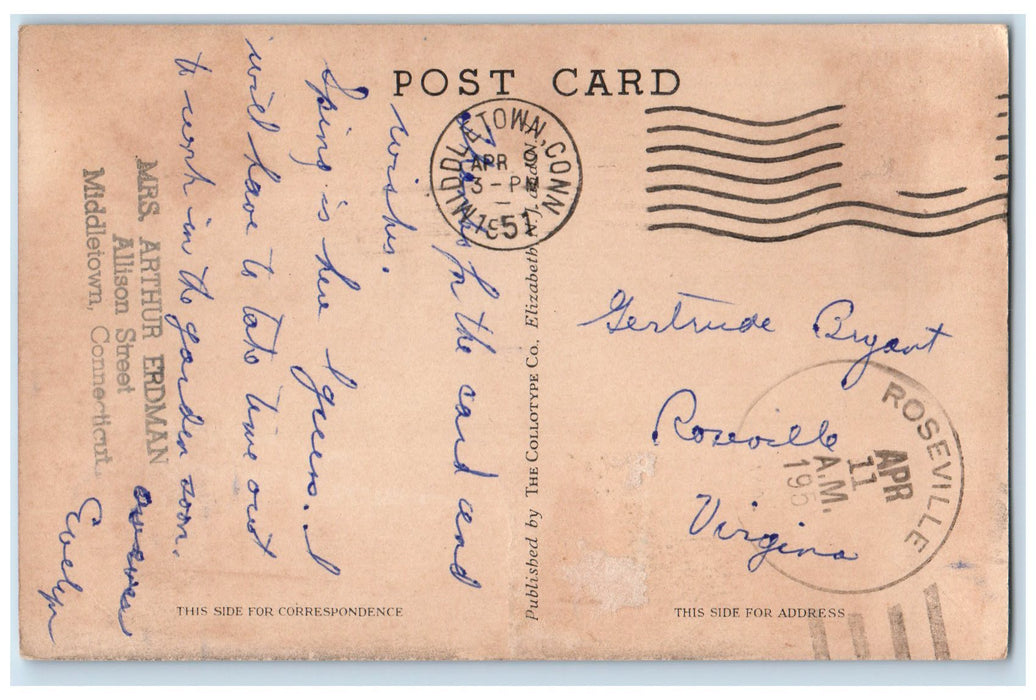 POST CARD
MIDDLETOWN, CONN
APR 9
3 - PM
1951
Thanks for the card and
wishes.
Spring is here I guess. I
will have to take time out
to work in the garden soon.
Evelyn
MRS. ARTHUR ERDMAN
Allison Street
Middletown, Connecticut
Published by THE COLLOTYPE Co., Elizabeth, N. J.
Gertrude Bryant
Roseville
Virginia
ROSEVILLE
APR
11
A.M.
195
THIS SIDE FOR CORRESPONDENCE
THIS SIDE FOR ADDRESS